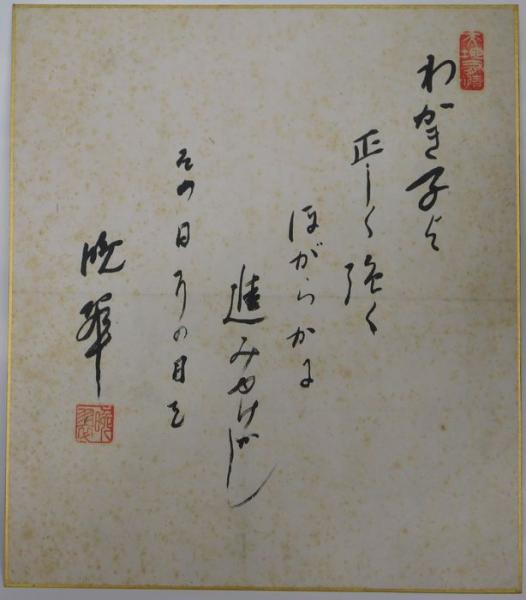 わかき子よ
正しく強く
ほがらかに
進みゆけかし
その日その日を
晩翠